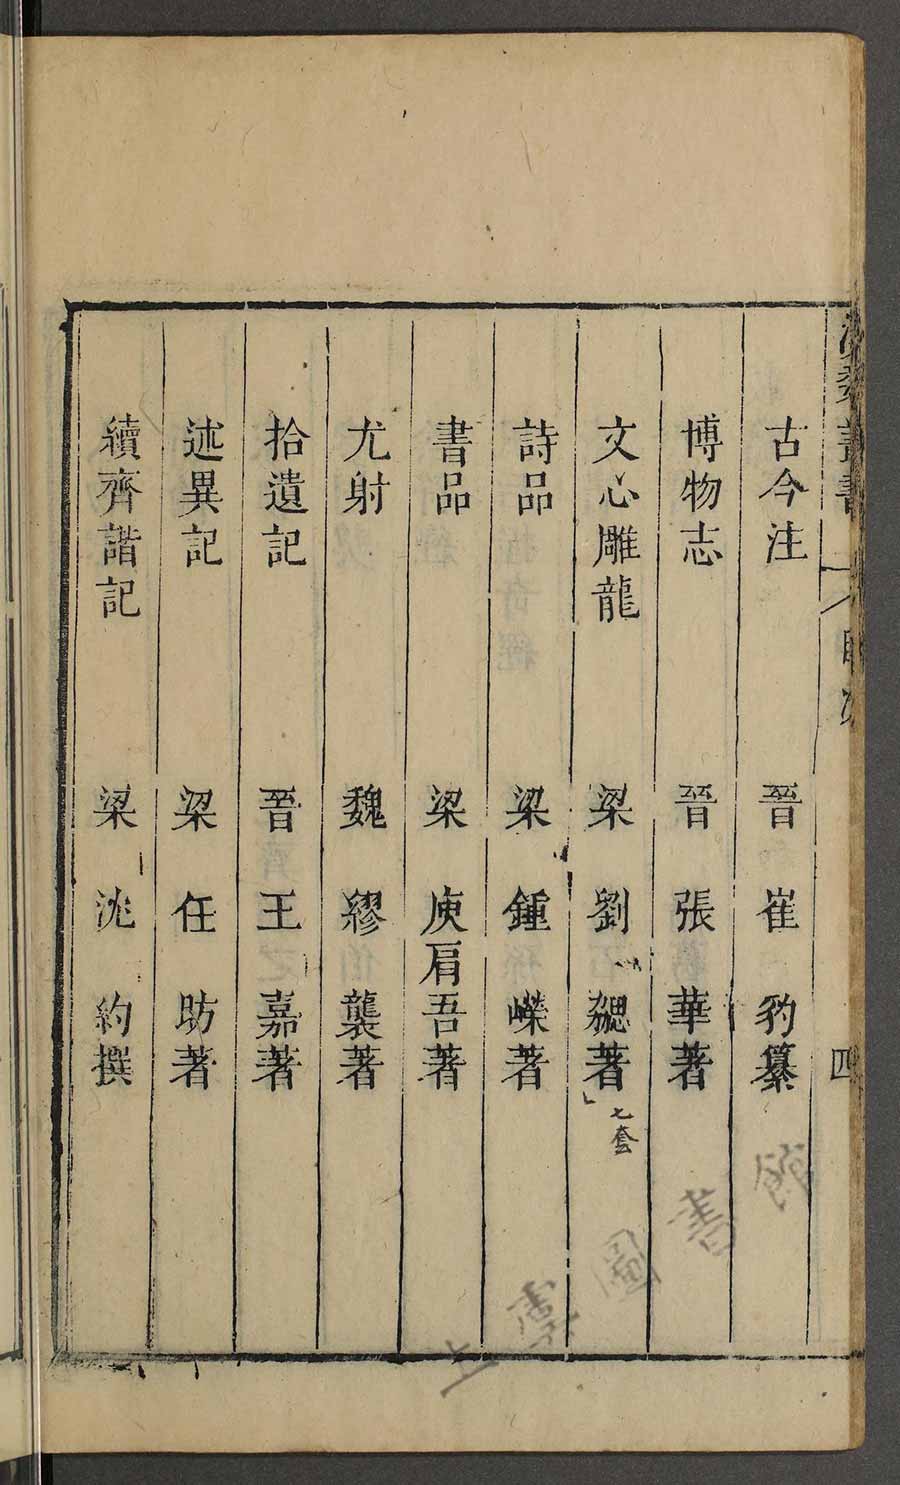 漢魏叢書 目次 四
古今注 晉 崔豹纂
博物志 晉 張華著
文心雕龍 梁 劉勰著」七套
詩品 梁 鍾嶸著
書品 梁 庾肩吾著
尤射 魏 繆襲著
拾遺記 晉 王嘉著
述異記 梁 任昉著
續齊諧記 梁 沈約撰